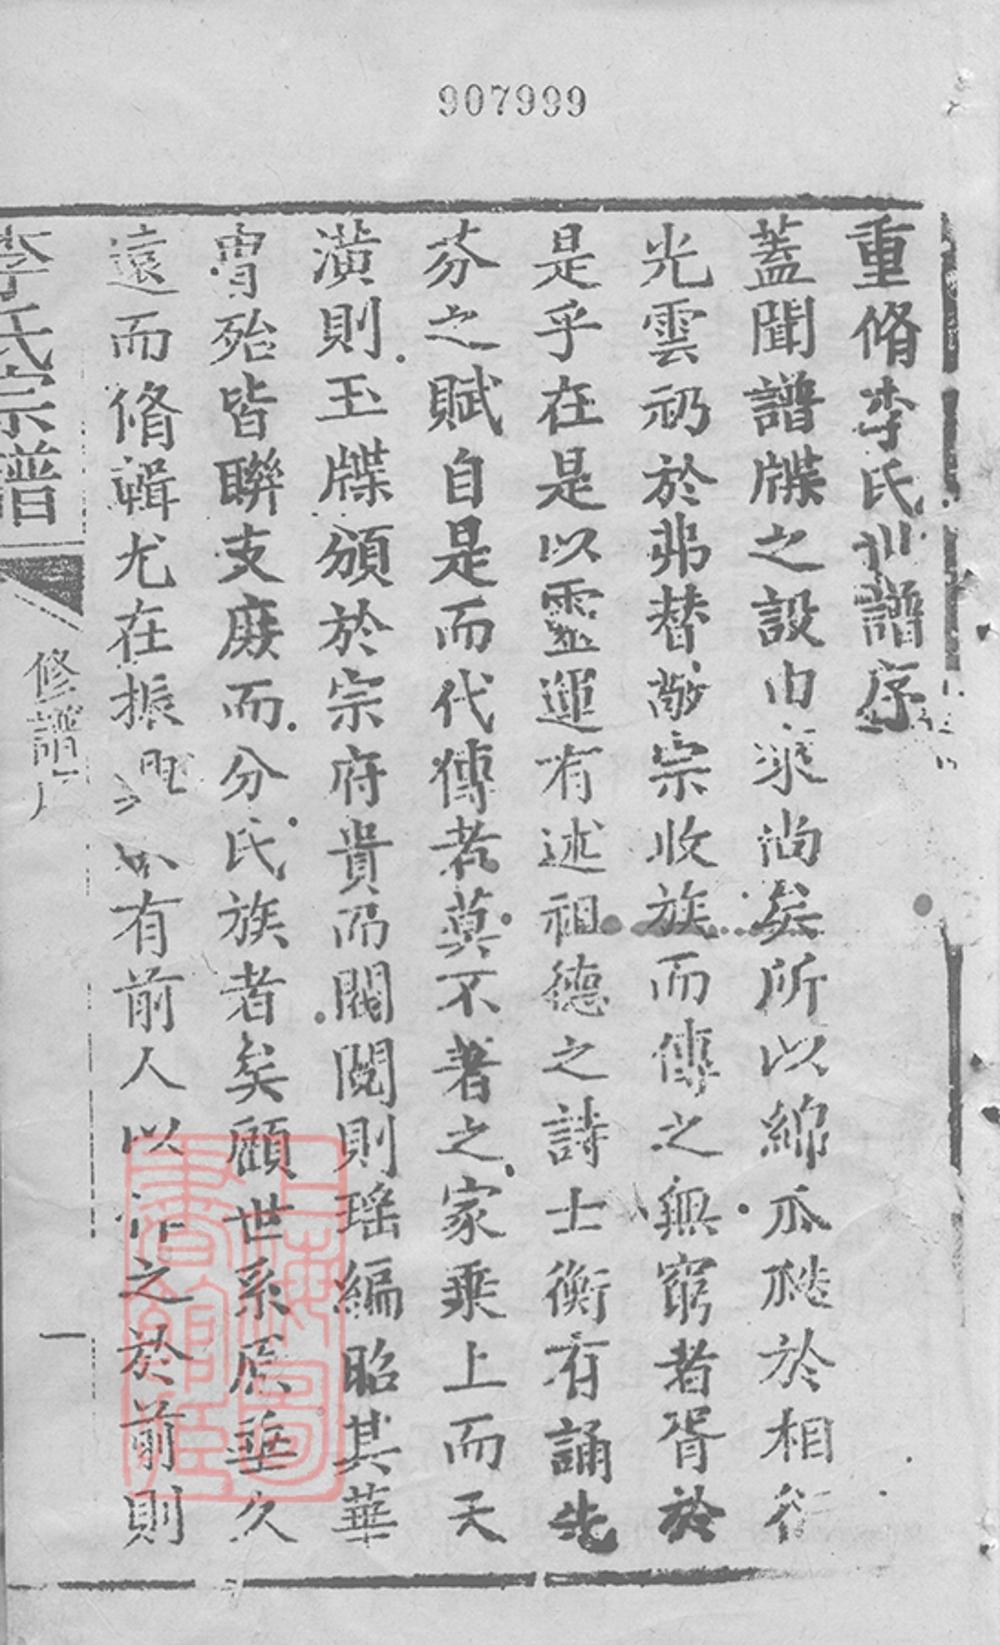 907999
重脩李氏訓譜序
蓋聞譜牒之設由來尚矣所以綿瓜瓞於相衍
光雲礽於弗替敬宗收族而傳之無窮者胥於
是乎在是以靈運有述祖德之詩士衡有誦先
芬之賦自是而代傳者莫不著之家乘上而天
潢則玉牒頒於宗府貴而閥閱則瑶編昭其華
胄殆皆聯支庶而分氏族者矣顧世系原垂久
遠而脩輯尤在振有前人以作之於前則
李氏宗譜
修譜序
一
上海圖書館藏